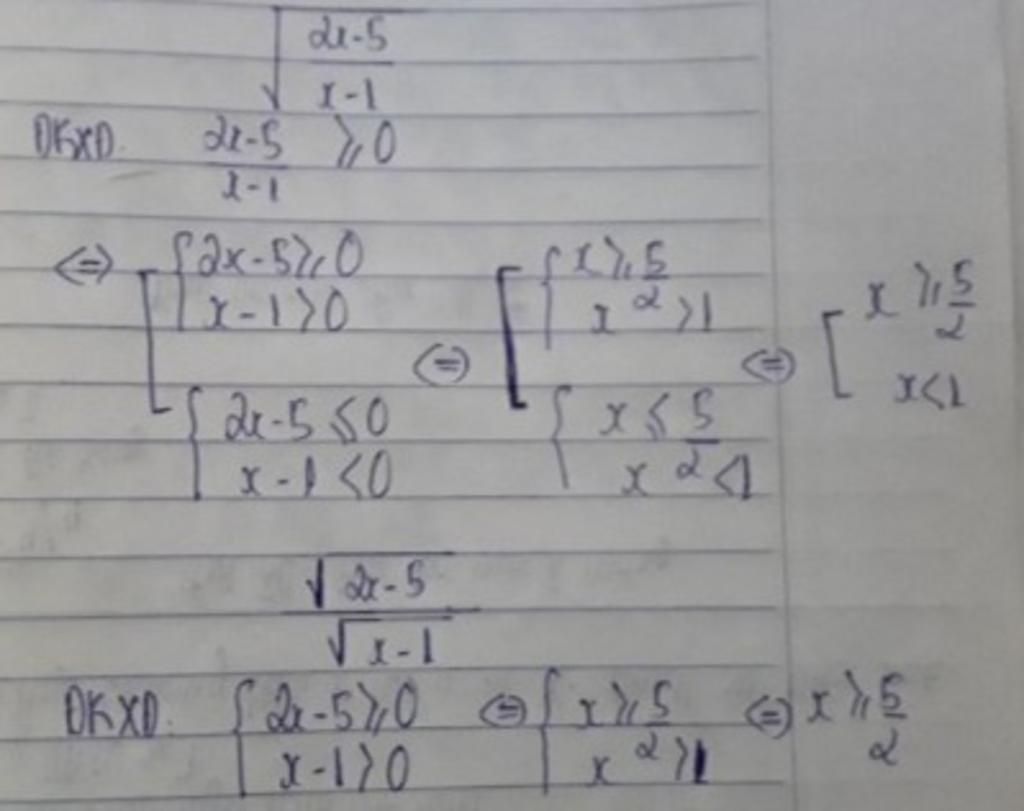 √((2x-5)/(x-1))
ĐKXĐ. (2x-5)/(x-1) ⩾ 0
⇔ [ { 2x-5 ⩾ 0 ; x-1 > 0 ; { 2x-5 ⩽ 0 ; x-1 < 0 ⇔ [ { x ⩾ 5/2 ; x > 1 ; { x ⩽ 5/2 ; x < 1 ⇔ [ x ⩾ 5/2 ; x < 1
√(2x-5)/√(x-1)
ĐKXĐ. { 2x-5 ⩾ 0 ; x-1 > 0 ⇔ { x ⩾ 5/2 ; x > 1 ⇔ x ⩾ 5/2